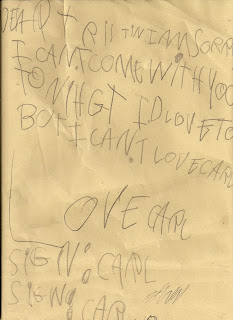 IAM SORR
I CANT COME WITH YOU
TONIHGT I.D LOVE TO
BOT I CANT LOVE CARL
OVE CARL
SIGN: CARL
SIGN: CAR